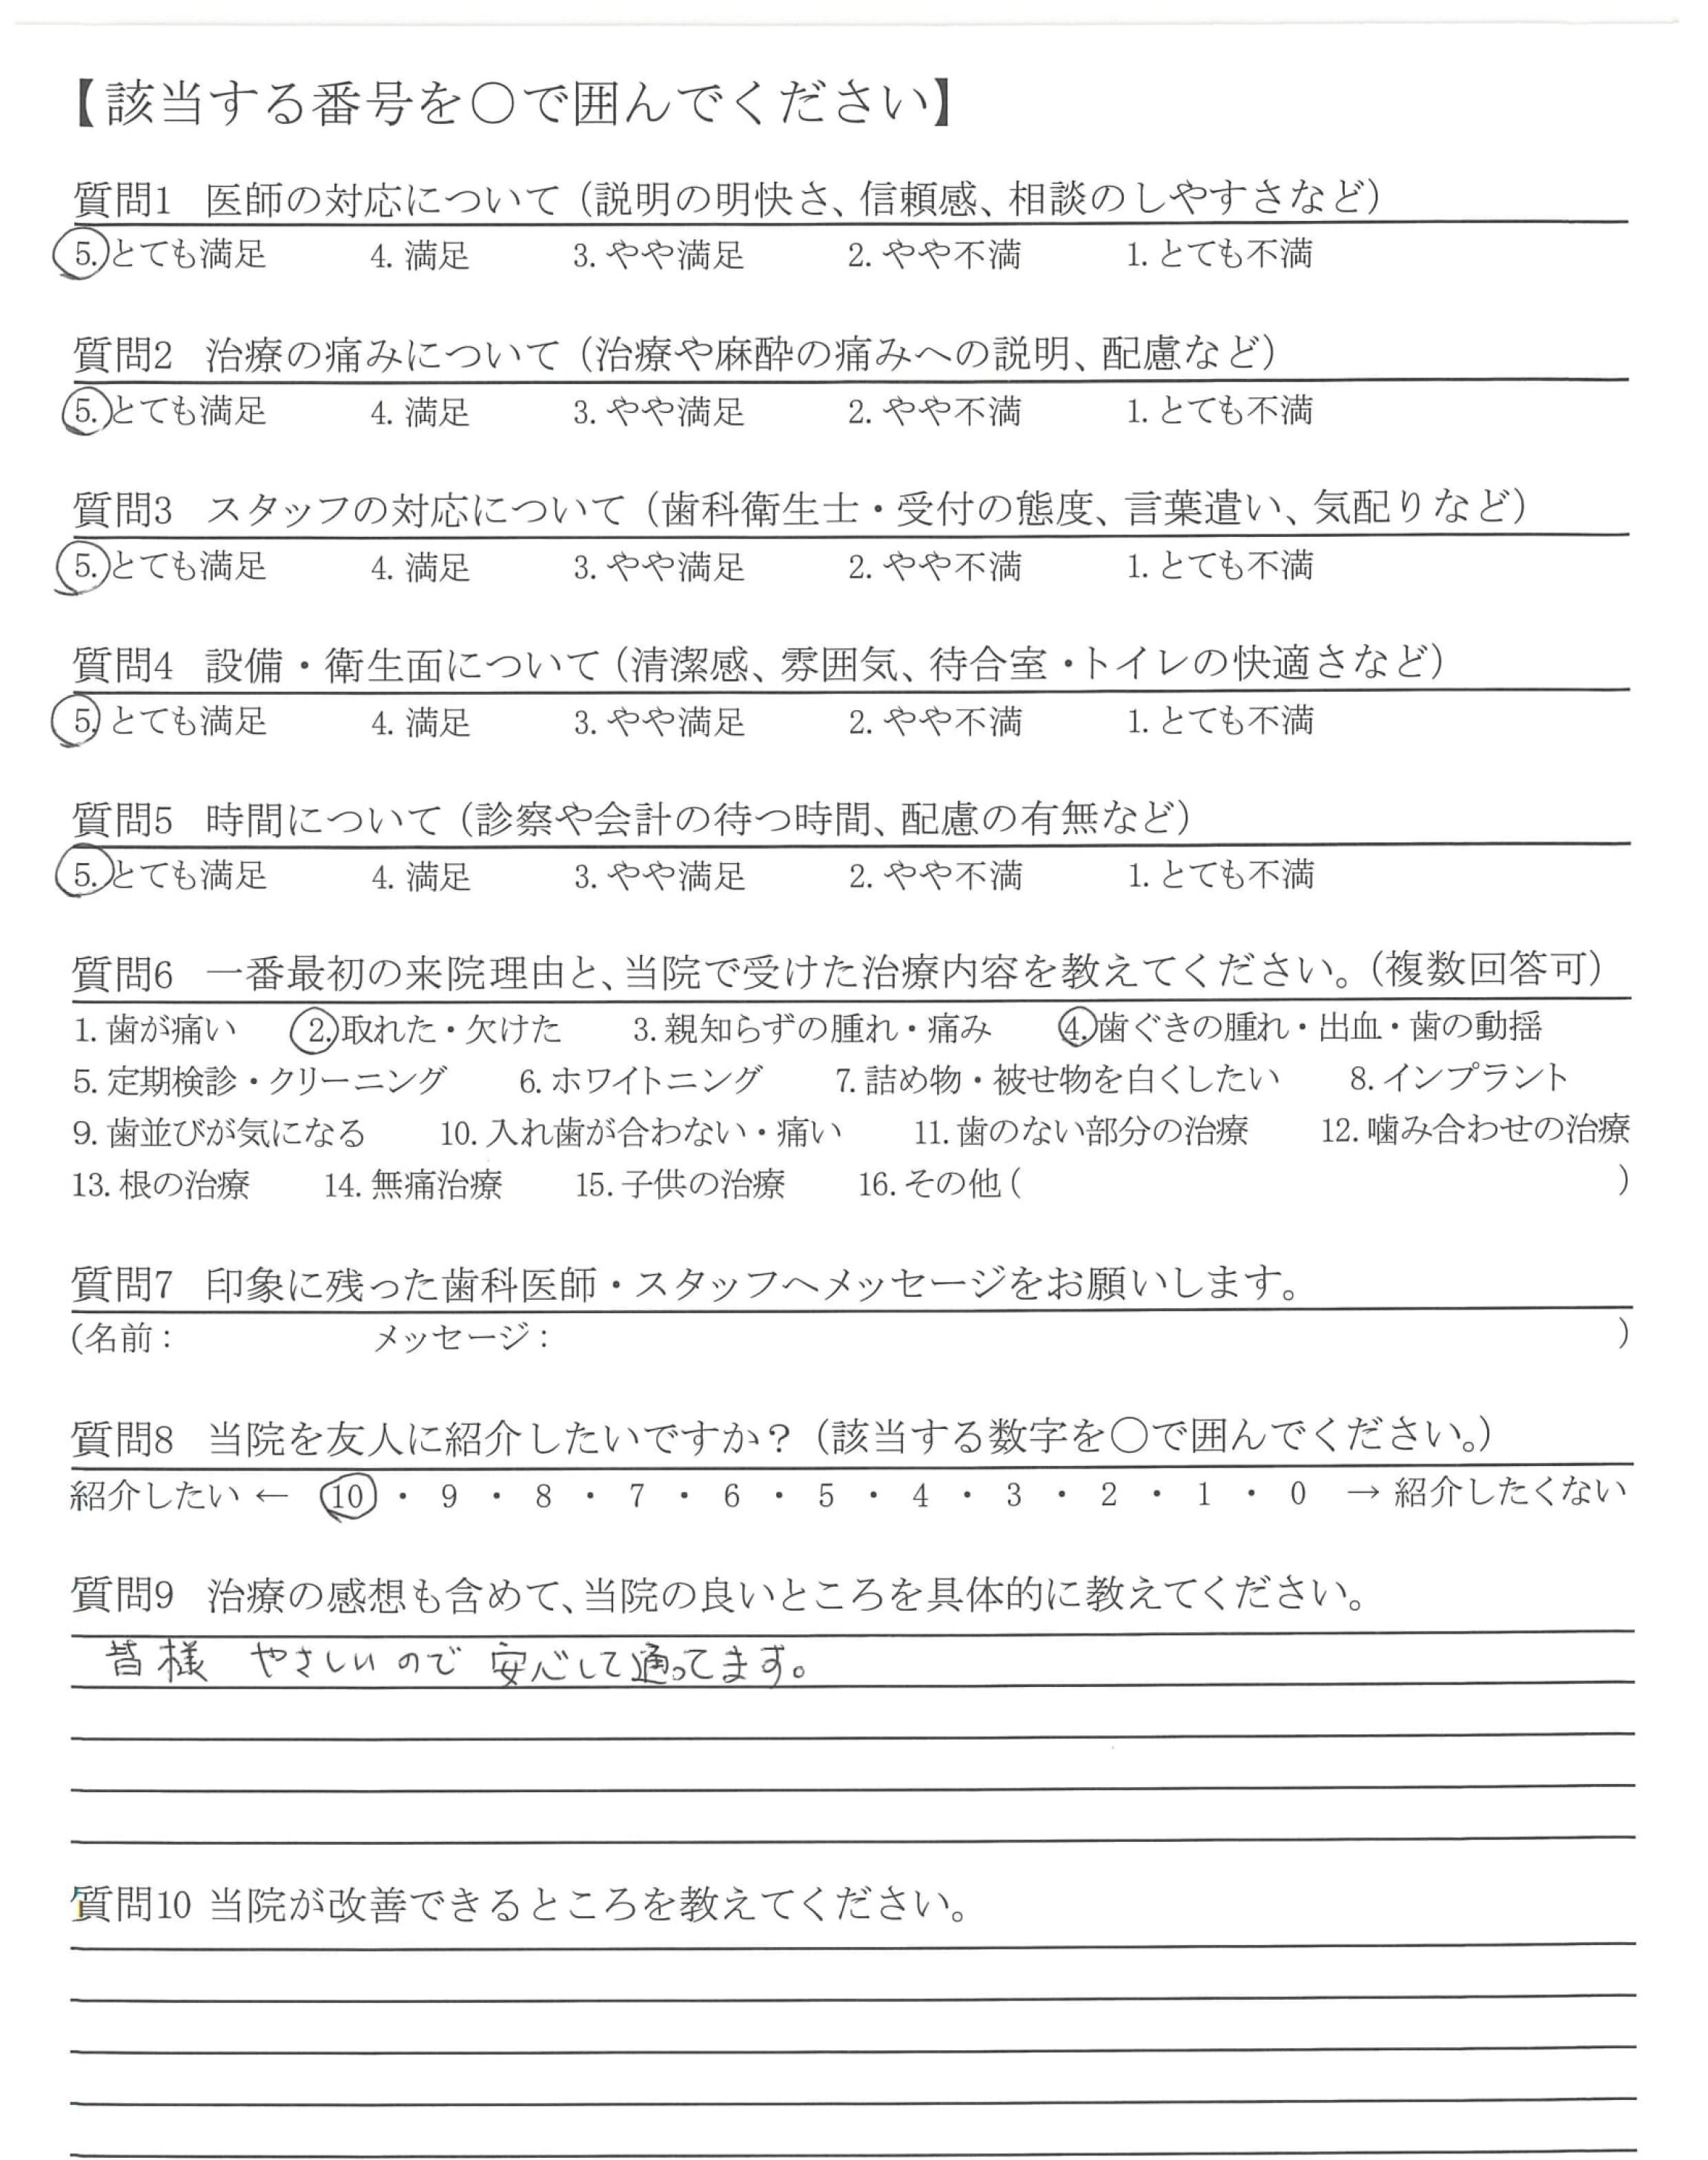 【該当する番号を○で囲んでください】
質問1 医師の対応について（説明の明快さ、信頼感、相談のしやすさなど）
5. とても満足 4. 満足 3. やや満足 2. やや不満 1. とても不満
質問2 治療の痛みについて（治療や麻酔の痛みへの説明、配慮など）
5. とても満足 4. 満足 3. やや満足 2. やや不満 1. とても不満
質問3 スタッフの対応について（歯科衛生士・受付の態度、言葉遣い、気配りなど）
5. とても満足 4. 満足 3. やや満足 2. やや不満 1. とても不満
質問4 設備・衛生面について（清潔感、雰囲気、待合室・トイレの快適さなど）
5. とても満足 4. 満足 3. やや満足 2. やや不満 1. とても不満
質問5 時間について（診察や会計の待つ時間、配慮の有無など）
5. とても満足 4. 満足 3. やや満足 2. やや不満 1. とても不満
質問6 一番最初の来院理由と、当院で受けた治療内容を教えてください。（複数回答可）
1. 歯が痛い 2. 取れた・欠けた 3. 親知らずの腫れ・痛み 4. 歯ぐきの腫れ・出血・歯の動揺
5. 定期検診・クリーニング 6. ホワイトニング 7. 詰め物・被せ物を白くしたい 8. インプラント
9. 歯並びが気になる 10. 入れ歯が合わない・痛い 11. 歯のない部分の治療 12. 噛み合わせの治療
13. 根の治療 14. 無痛治療 15. 子供の治療 16. その他（ ）
質問7 印象に残った歯科医師・スタッフへメッセージをお願いします。
（名前： メッセージ： ）
質問8 当院を友人に紹介したいですか？（該当する数字を○で囲んでください。）
紹介したい ← 10 ・ 9 ・ 8 ・ 7 ・ 6 ・ 5 ・ 4 ・ 3 ・ 2 ・ 1 ・ 0 → 紹介したくない
質問9 治療の感想も含めて、当院の良いところを具体的に教えてください。
皆様 やさしいので 安心して通ってます。
質問10 当院が改善できるところを教えてください。